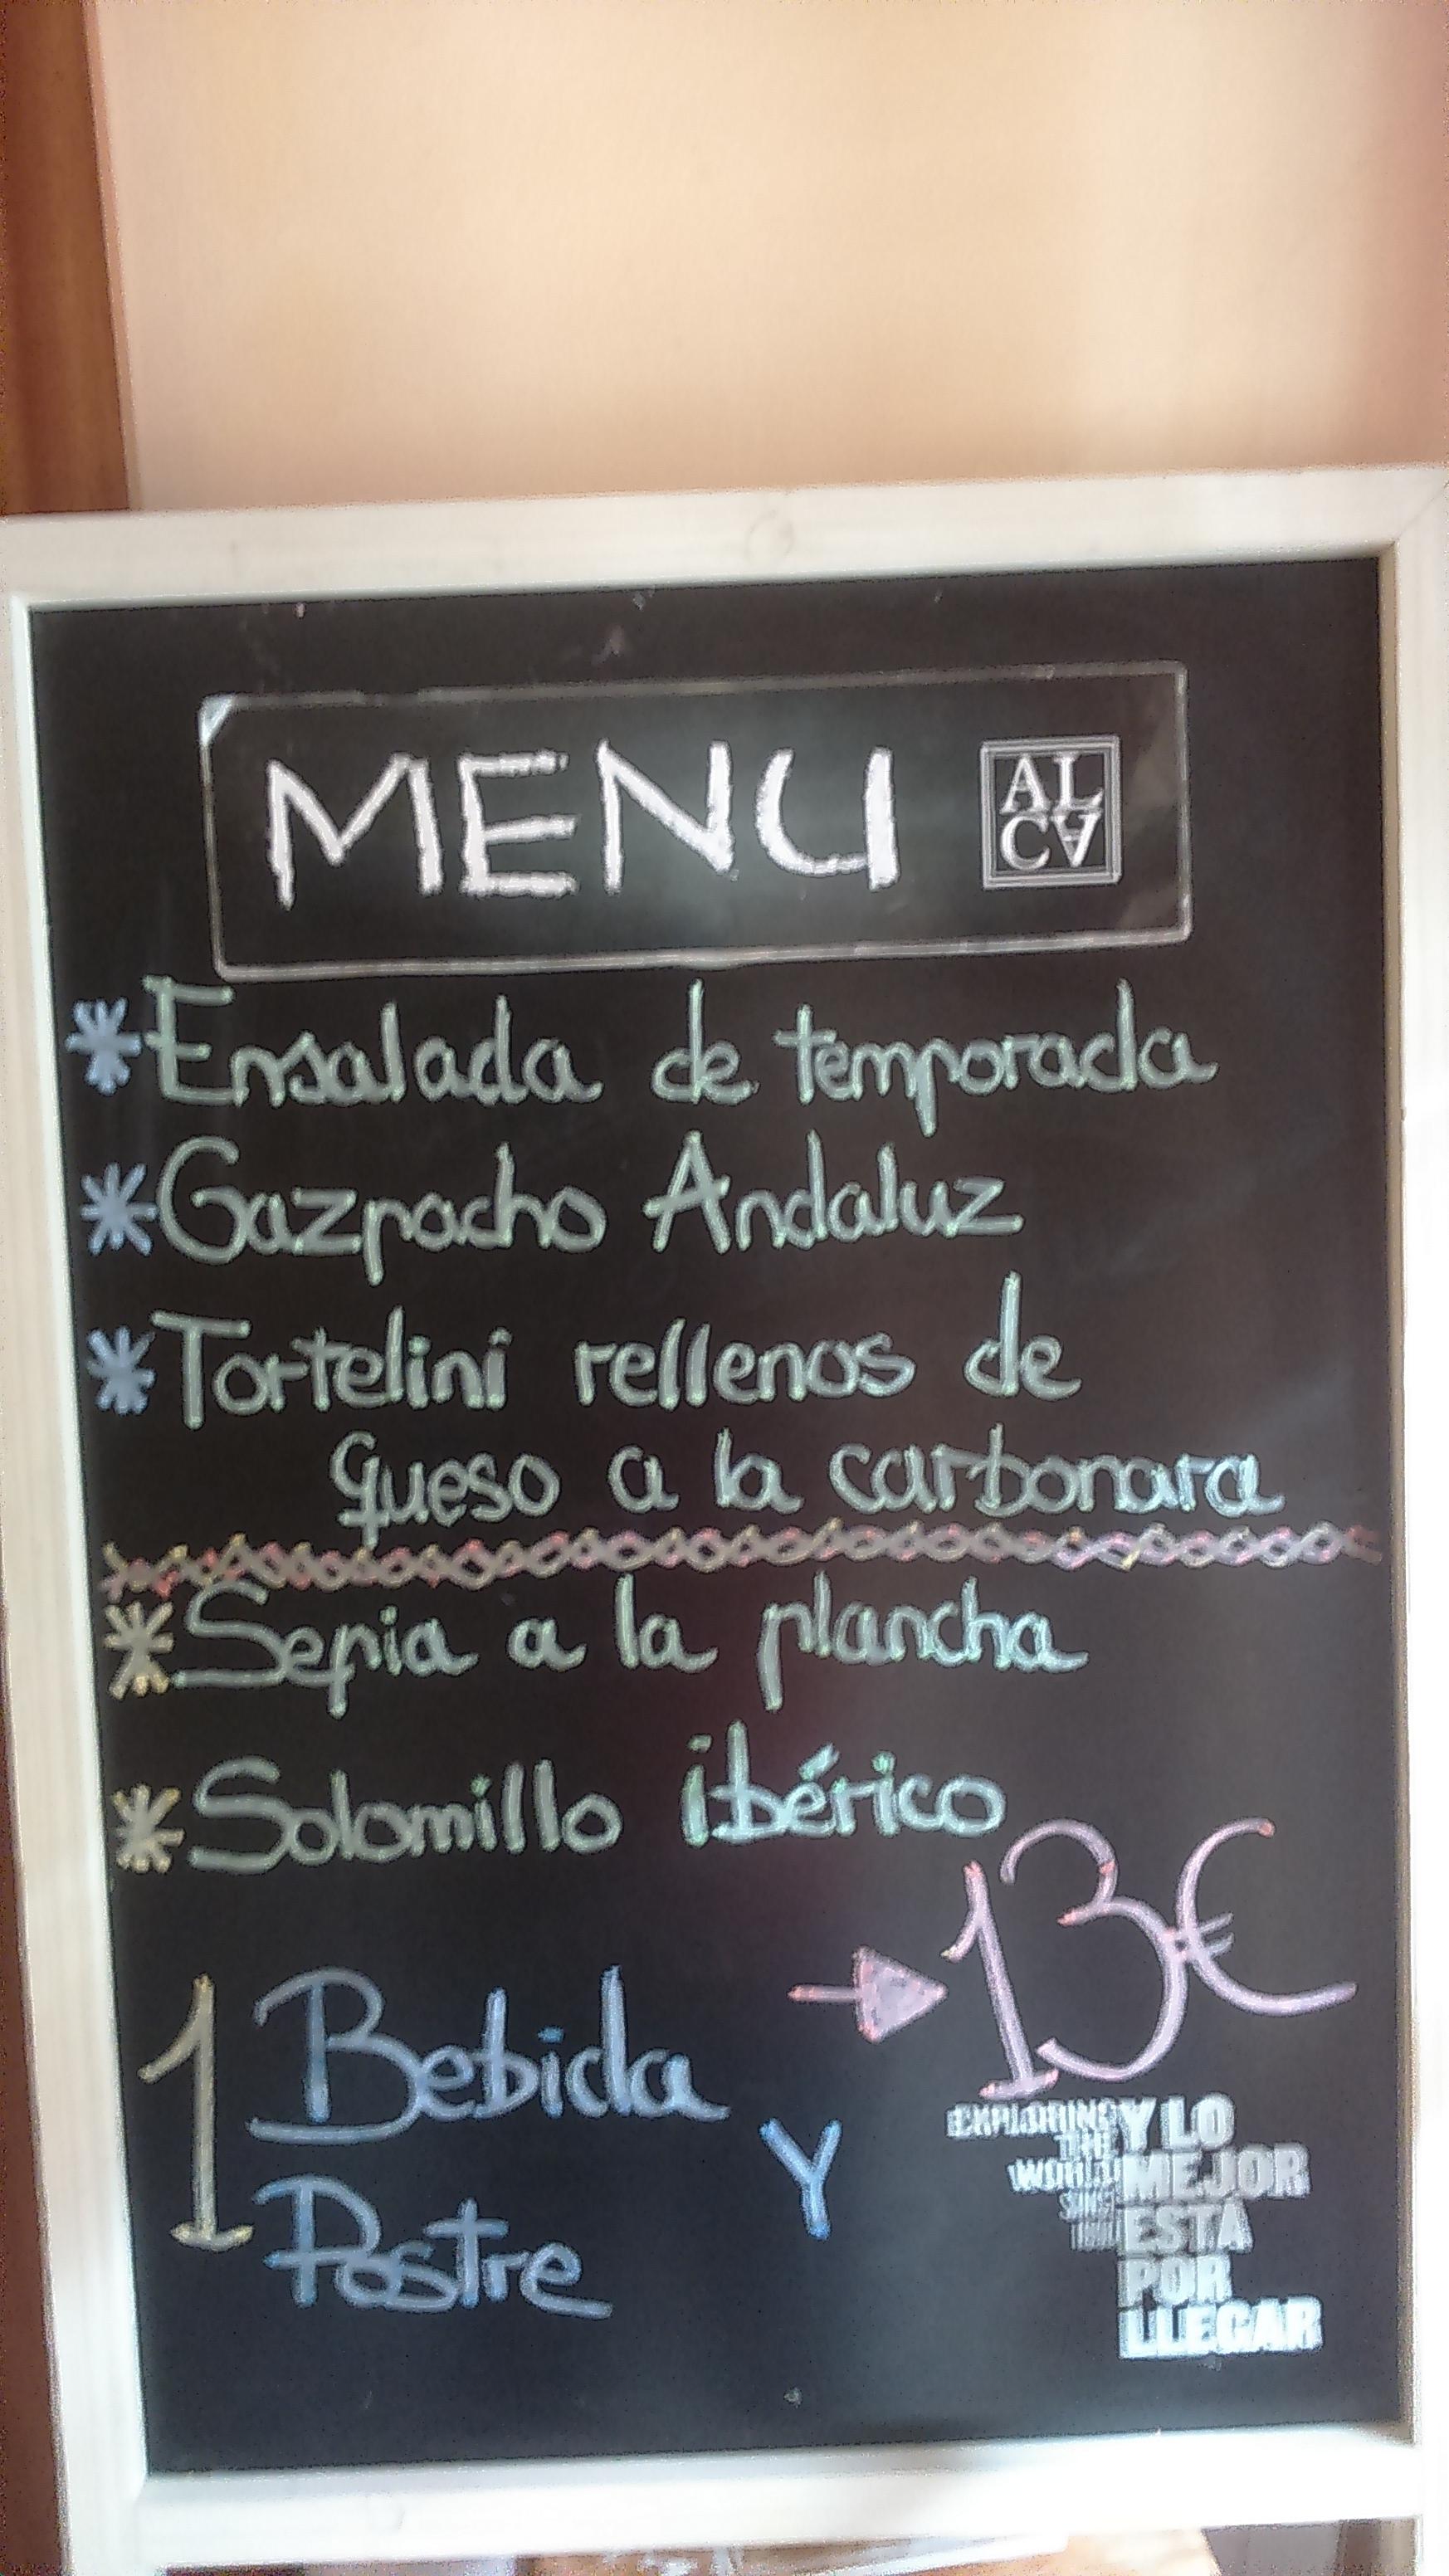 MENU
AL
CA
*Ensalada de temporada
*Gazpacho Andaluz
*Tortelini rellenos de
queso a la carbonara
*Sepia a la plancha
*Solomillo ibérico
13€
1 Bebida y
Postre
EXPLORING
THE
WORLD
Y LO
MEJOR
ESTA
POR
LLEGAR